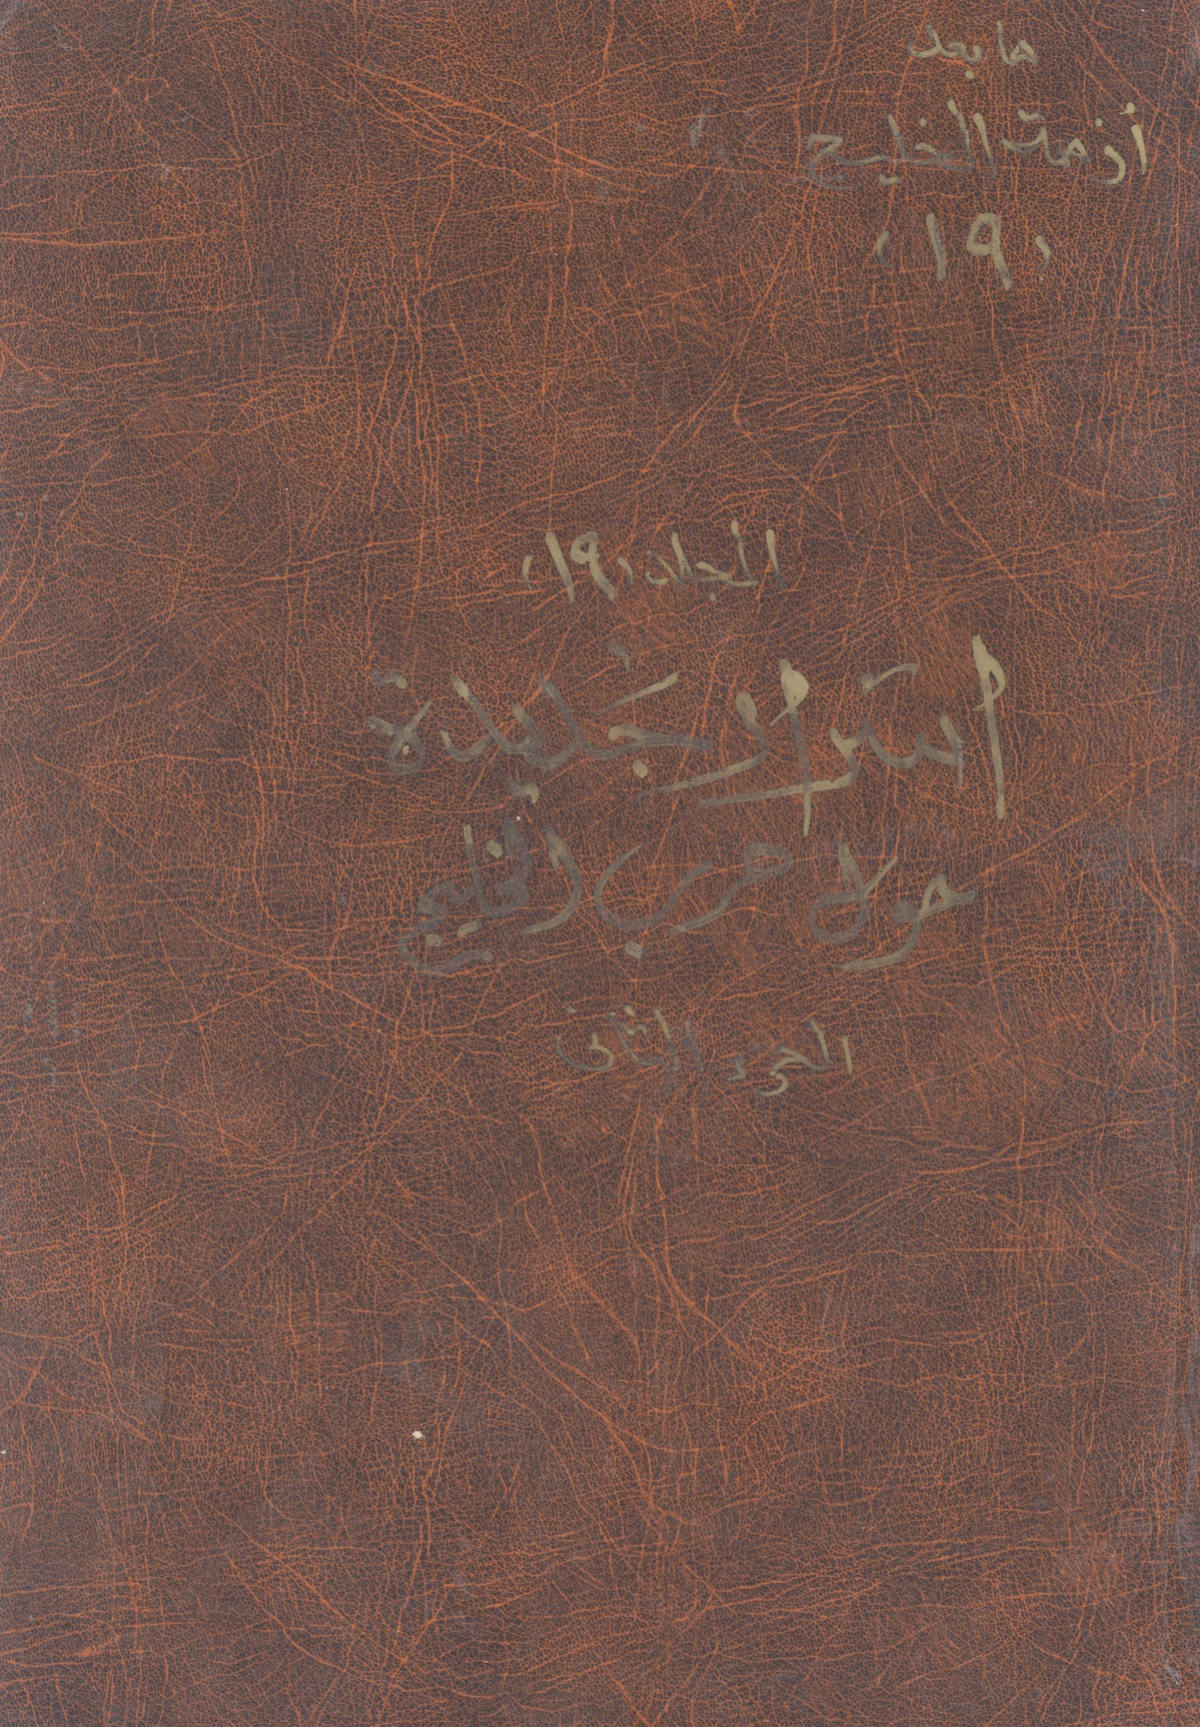 ما بعد
أزمة الخليج
(١٩)
المجلد (١٩)
اسرار جديدة
حول حرب الخليج
الجزء الثاني